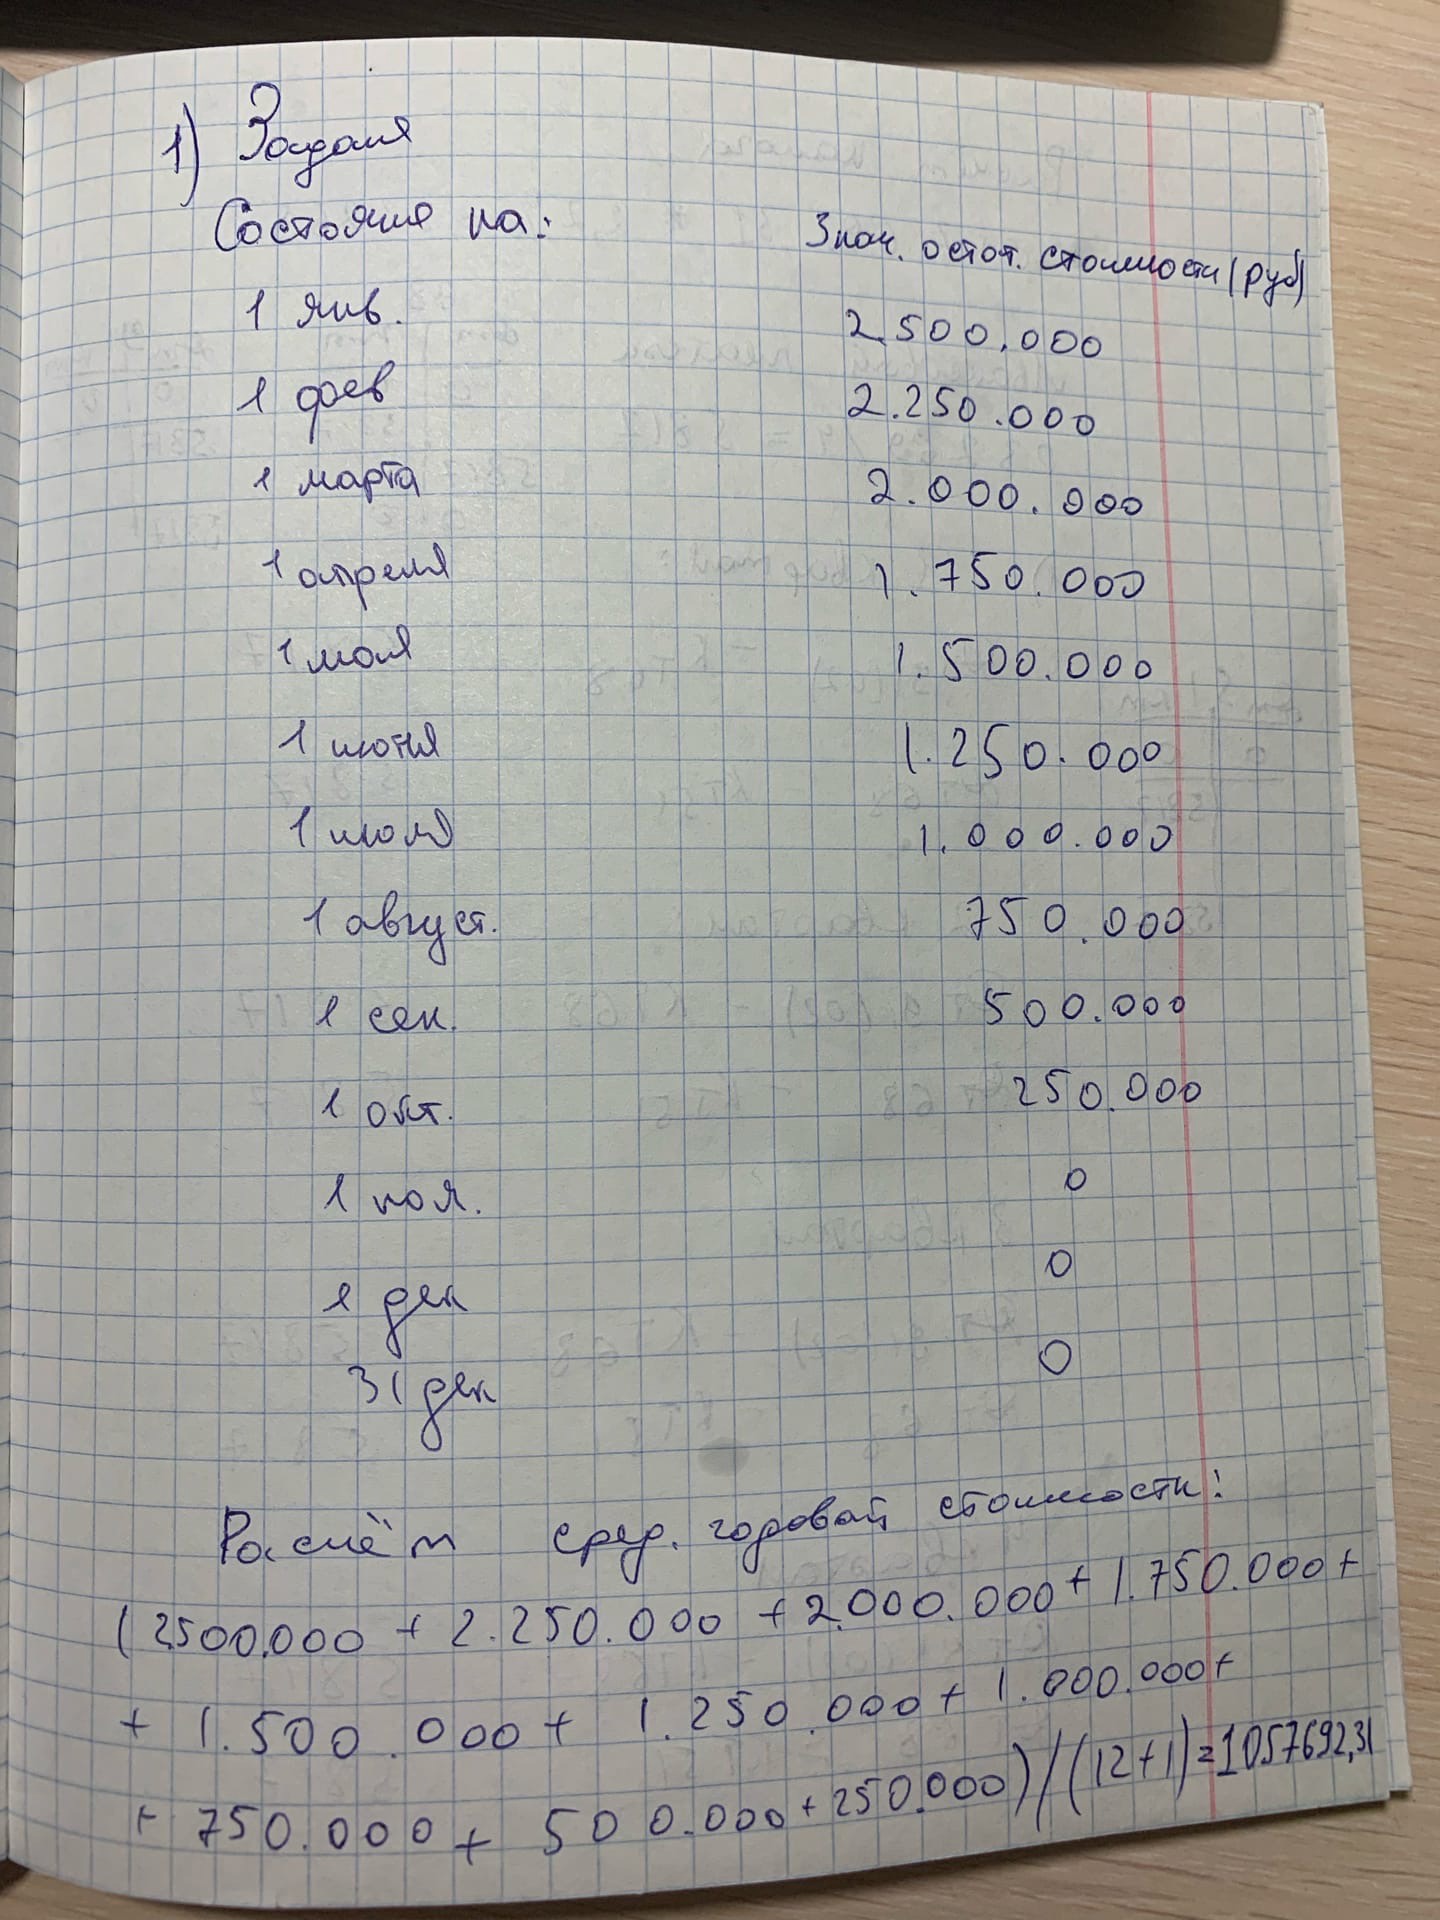 1) Задания
Состояния на: Знач. остат. стоимости (руб)
1 янв. 2.500.000
1 фев 2.250.000
1 марта 2.000.000
1 апреля 1.750.000
1 мая 1.500.000
1 июня 1.250.000
1 июля 1.000.000
1 август. 750.000
1 сен. 500.000
1 окт. 250.000
1 ноя. 0
1 дек 0
31 дек 0
Расчёт сред. годовой стоимости:
(2500.000 + 2.250.000 + 2.000.000 + 1.750.000 +
+ 1.500.000 + 1.250.000 + 1.000.000 +
+ 750.000 + 500.000 + 250.000) / (12+1) = 1057692,31